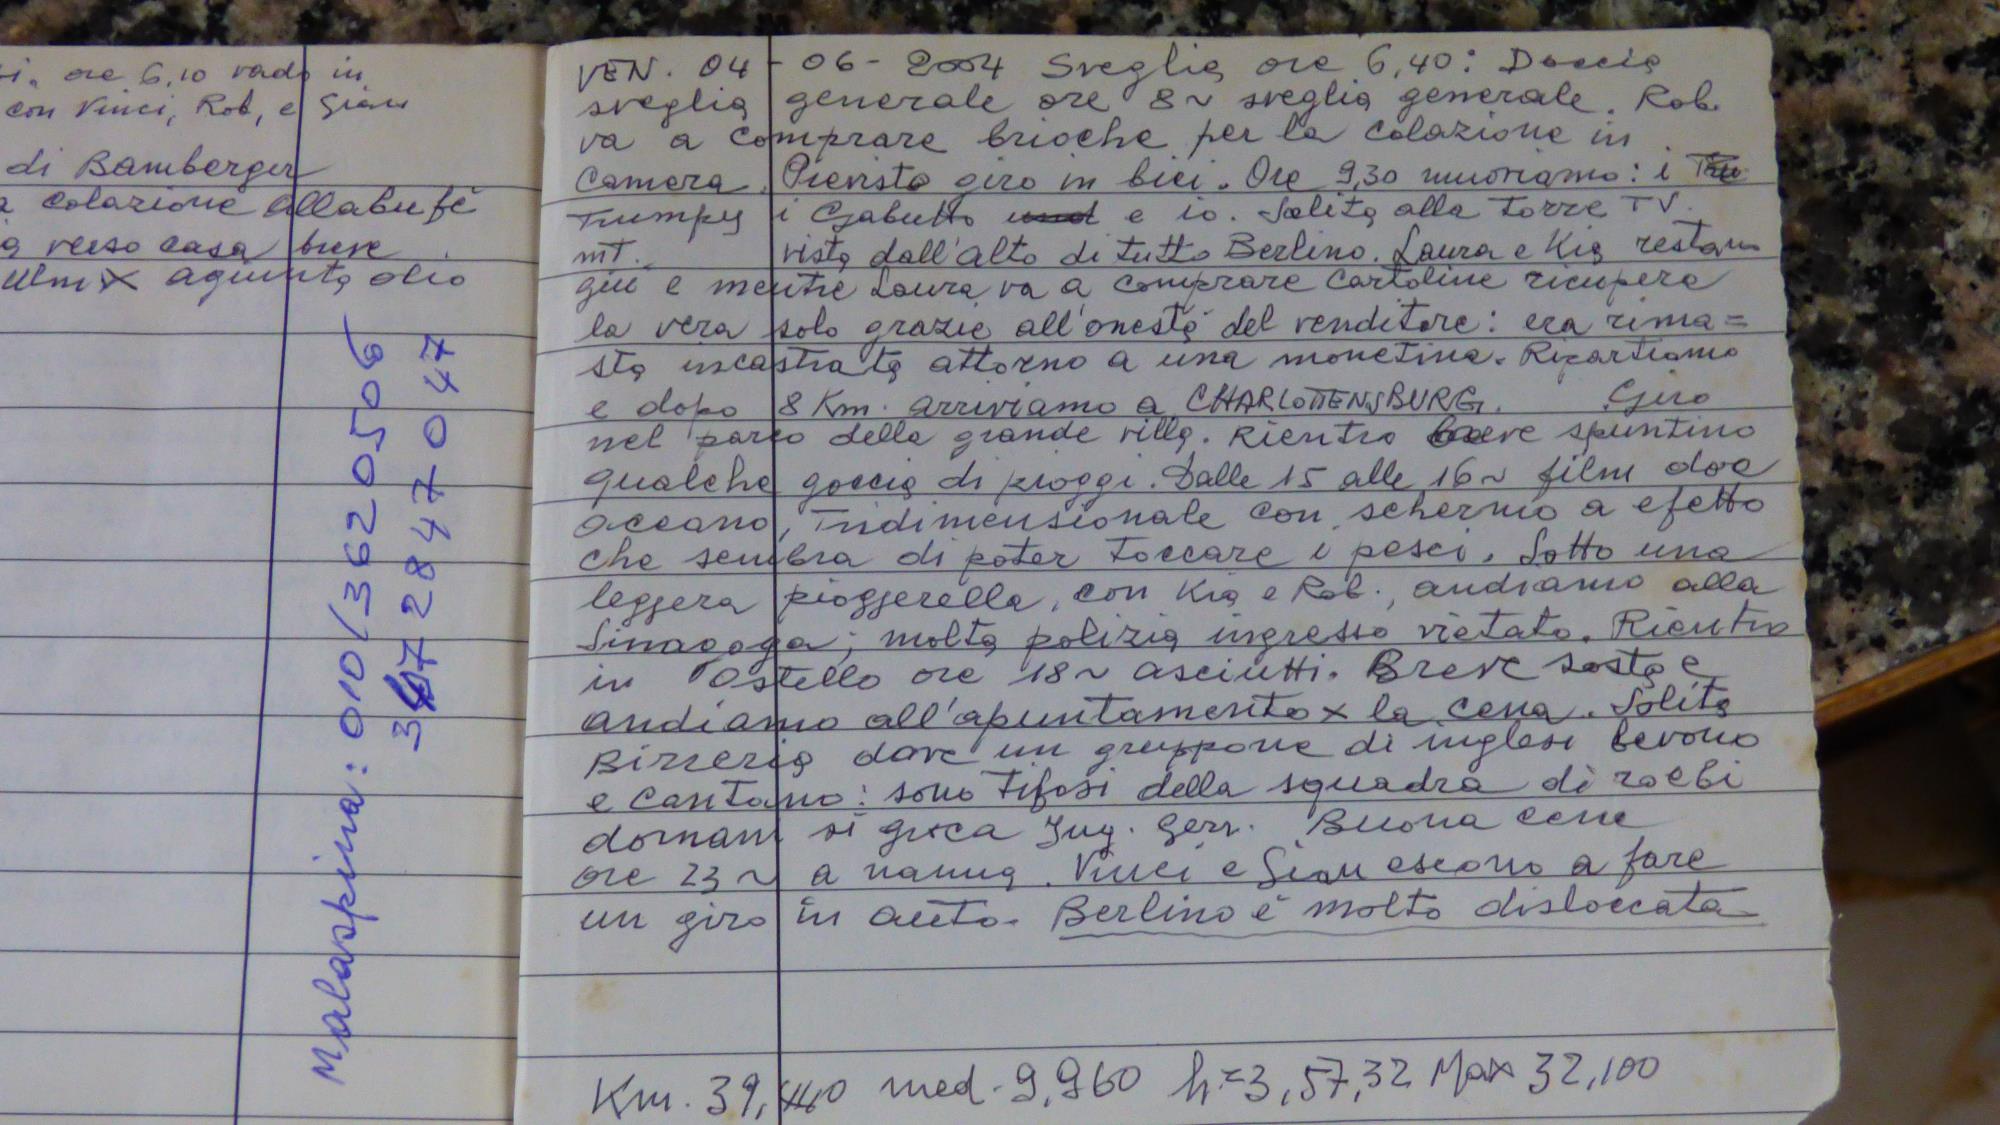 ore 6,10 vado in
con Vinci, Rob, e Gian
di Bamberger
colazione allabufè
verso casa breve
Ulm x agiunta olio
Malaspina: 010/3620506
34772847047
VEN. 04-06-2004 Sveglia ore 6,40: Doccia
sveglia generale ore 8~ sveglia generale. Rob.
va a comprare brioche per la colazione in
camera. Prevista giro in bici. Ore 9,30 muoviamo: i
Trumpy i Gabutto e io. Salita alla Torre TV.
mT. vista dall'alto di tutto Berlino. Laura e Kia restano
giù e mentre Laura va a comprare cartoline ricupera
la vera solo grazie all'onestà del venditore: era rima=
sta incastrata attorno a una monetina. Ripartiamo
e dopo 8 Km. arriviamo a CHARLOTTENSBURG. Giro
nel parco della grande villa. Rientro breve spuntino
qualche goccia di pioggi. Dalle 15 alle 16~ film doc
oceano, Tridimensionale con schermo a efetto
che sembra di poter toccare i pesci. Sotto una
leggera pioggerella, con Kia e Rob., andiamo alla
Sinagoga; molta polizia ingresso vietato. Rientro
in Ostello ore 18~ asciutti. Breve sosta e
andiamo all'apuntamento x la cena. Solita
Birreria dove un gruppone di inglesi bevono
e cantano: sono Tifosi della squadra di
domani si gioca Ing. Gerr. Buona cena
ore 23~ a nanna. Vinci e Gian escono a fare
un giro in auto. Berlino è molto disloccata
Km. 39, med. 9,960 h=3,57,32 Max 32,100